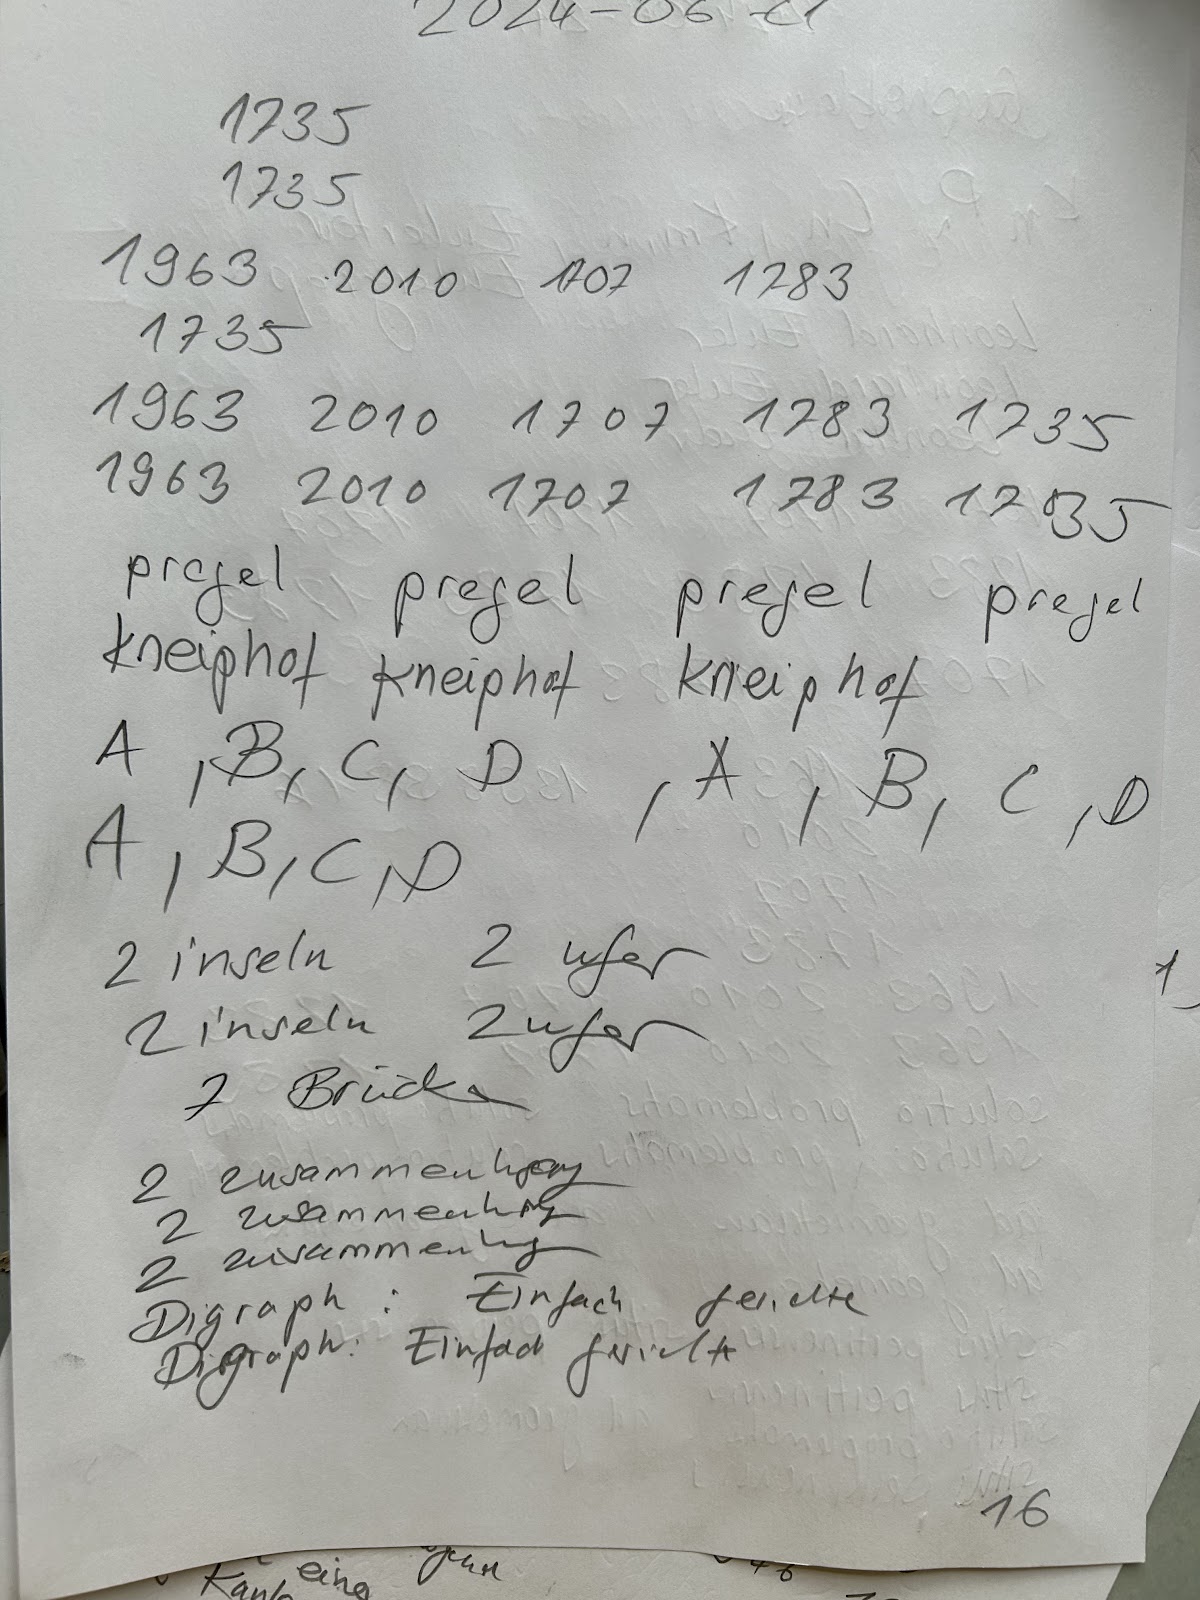 2024-06-21
1735
1735
1963 2010 1707 1783
1735
1963 2010 1707 1783 1735
1963 2010 1707 1783 1735
pregel pregel pregel pregel
kneiphof kneiphof kneiphof
A , B, C, D , A , B, C , D
A , B, C, D
2 inseln 2 ufer
2 inseln 2 ufer
7 Brücke
2 zusammenhang
2 zusammenhang
2 zusammenhang
Digraph : Einfach gerichte
Digraph: Einfach gerichte
16
eine